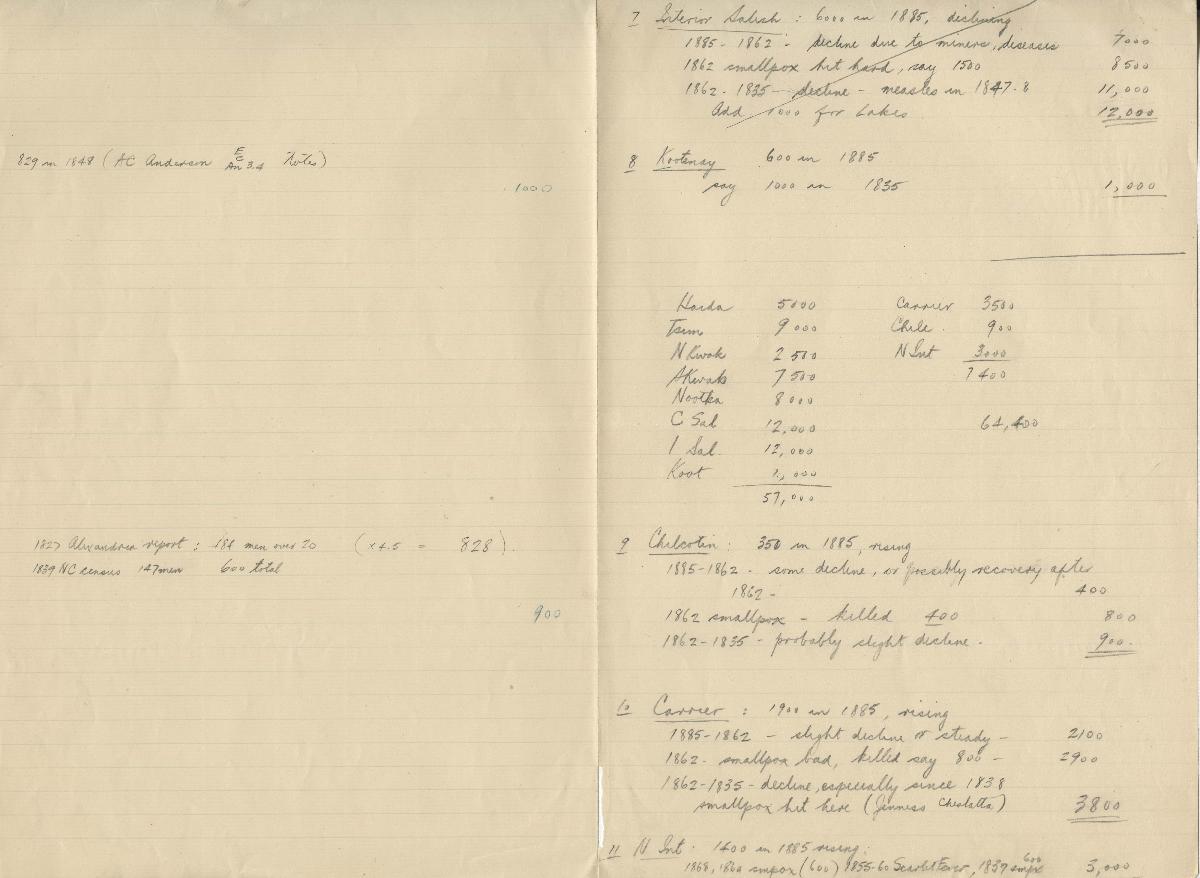 829 in 1848 (AC Anderson E C An 3.4 Notes)
1000
1827 Alexandria report : 184 men over 20 (x 4.5 = 828).
1839 NC census 147 men 600 total
900
7 Interior Salish : 6000 in 1885, declining
1885-1862 - decline due to miners, diseases 7000
1862 smallpox hit hard, say 1500 8500
1862-1835 - decline - measles in 1847-8 11,000
Add 1000 for Lakes 12,000
8 Kootenay 600 in 1885
say 1000 in 1835 1,000
Haida 5000 Carrier 3500
Tsim 9000 Chilc. 900
N Kwak 2500 N Int 3000
S Kwak 7500 7400
Nootka 8000
C Sal 12,000 64,400
I Sal. 12,000
Koot 1,000
57,000
9 Chilcotin : 350 in 1885, rising
1885-1862 - some decline, or possibly recovery after
1862 - 400
1862 smallpox - killed 400 800
1862-1835 - probably slight decline. 900.
10 Carrier : 1900 in 1885, rising
1885-1862 - slight decline or steady - 2100
1862 - smallpox bad, killed say 800 - 2900
1862-1835 - decline, especially since 1838
smallpox hit here (Jenness Cheslatta) 3800
11 N Int. 1400 in 1885 rising:
1868, smpox (600) 1855-60 Scarlet Fever, 1837 smpx 600 3,000